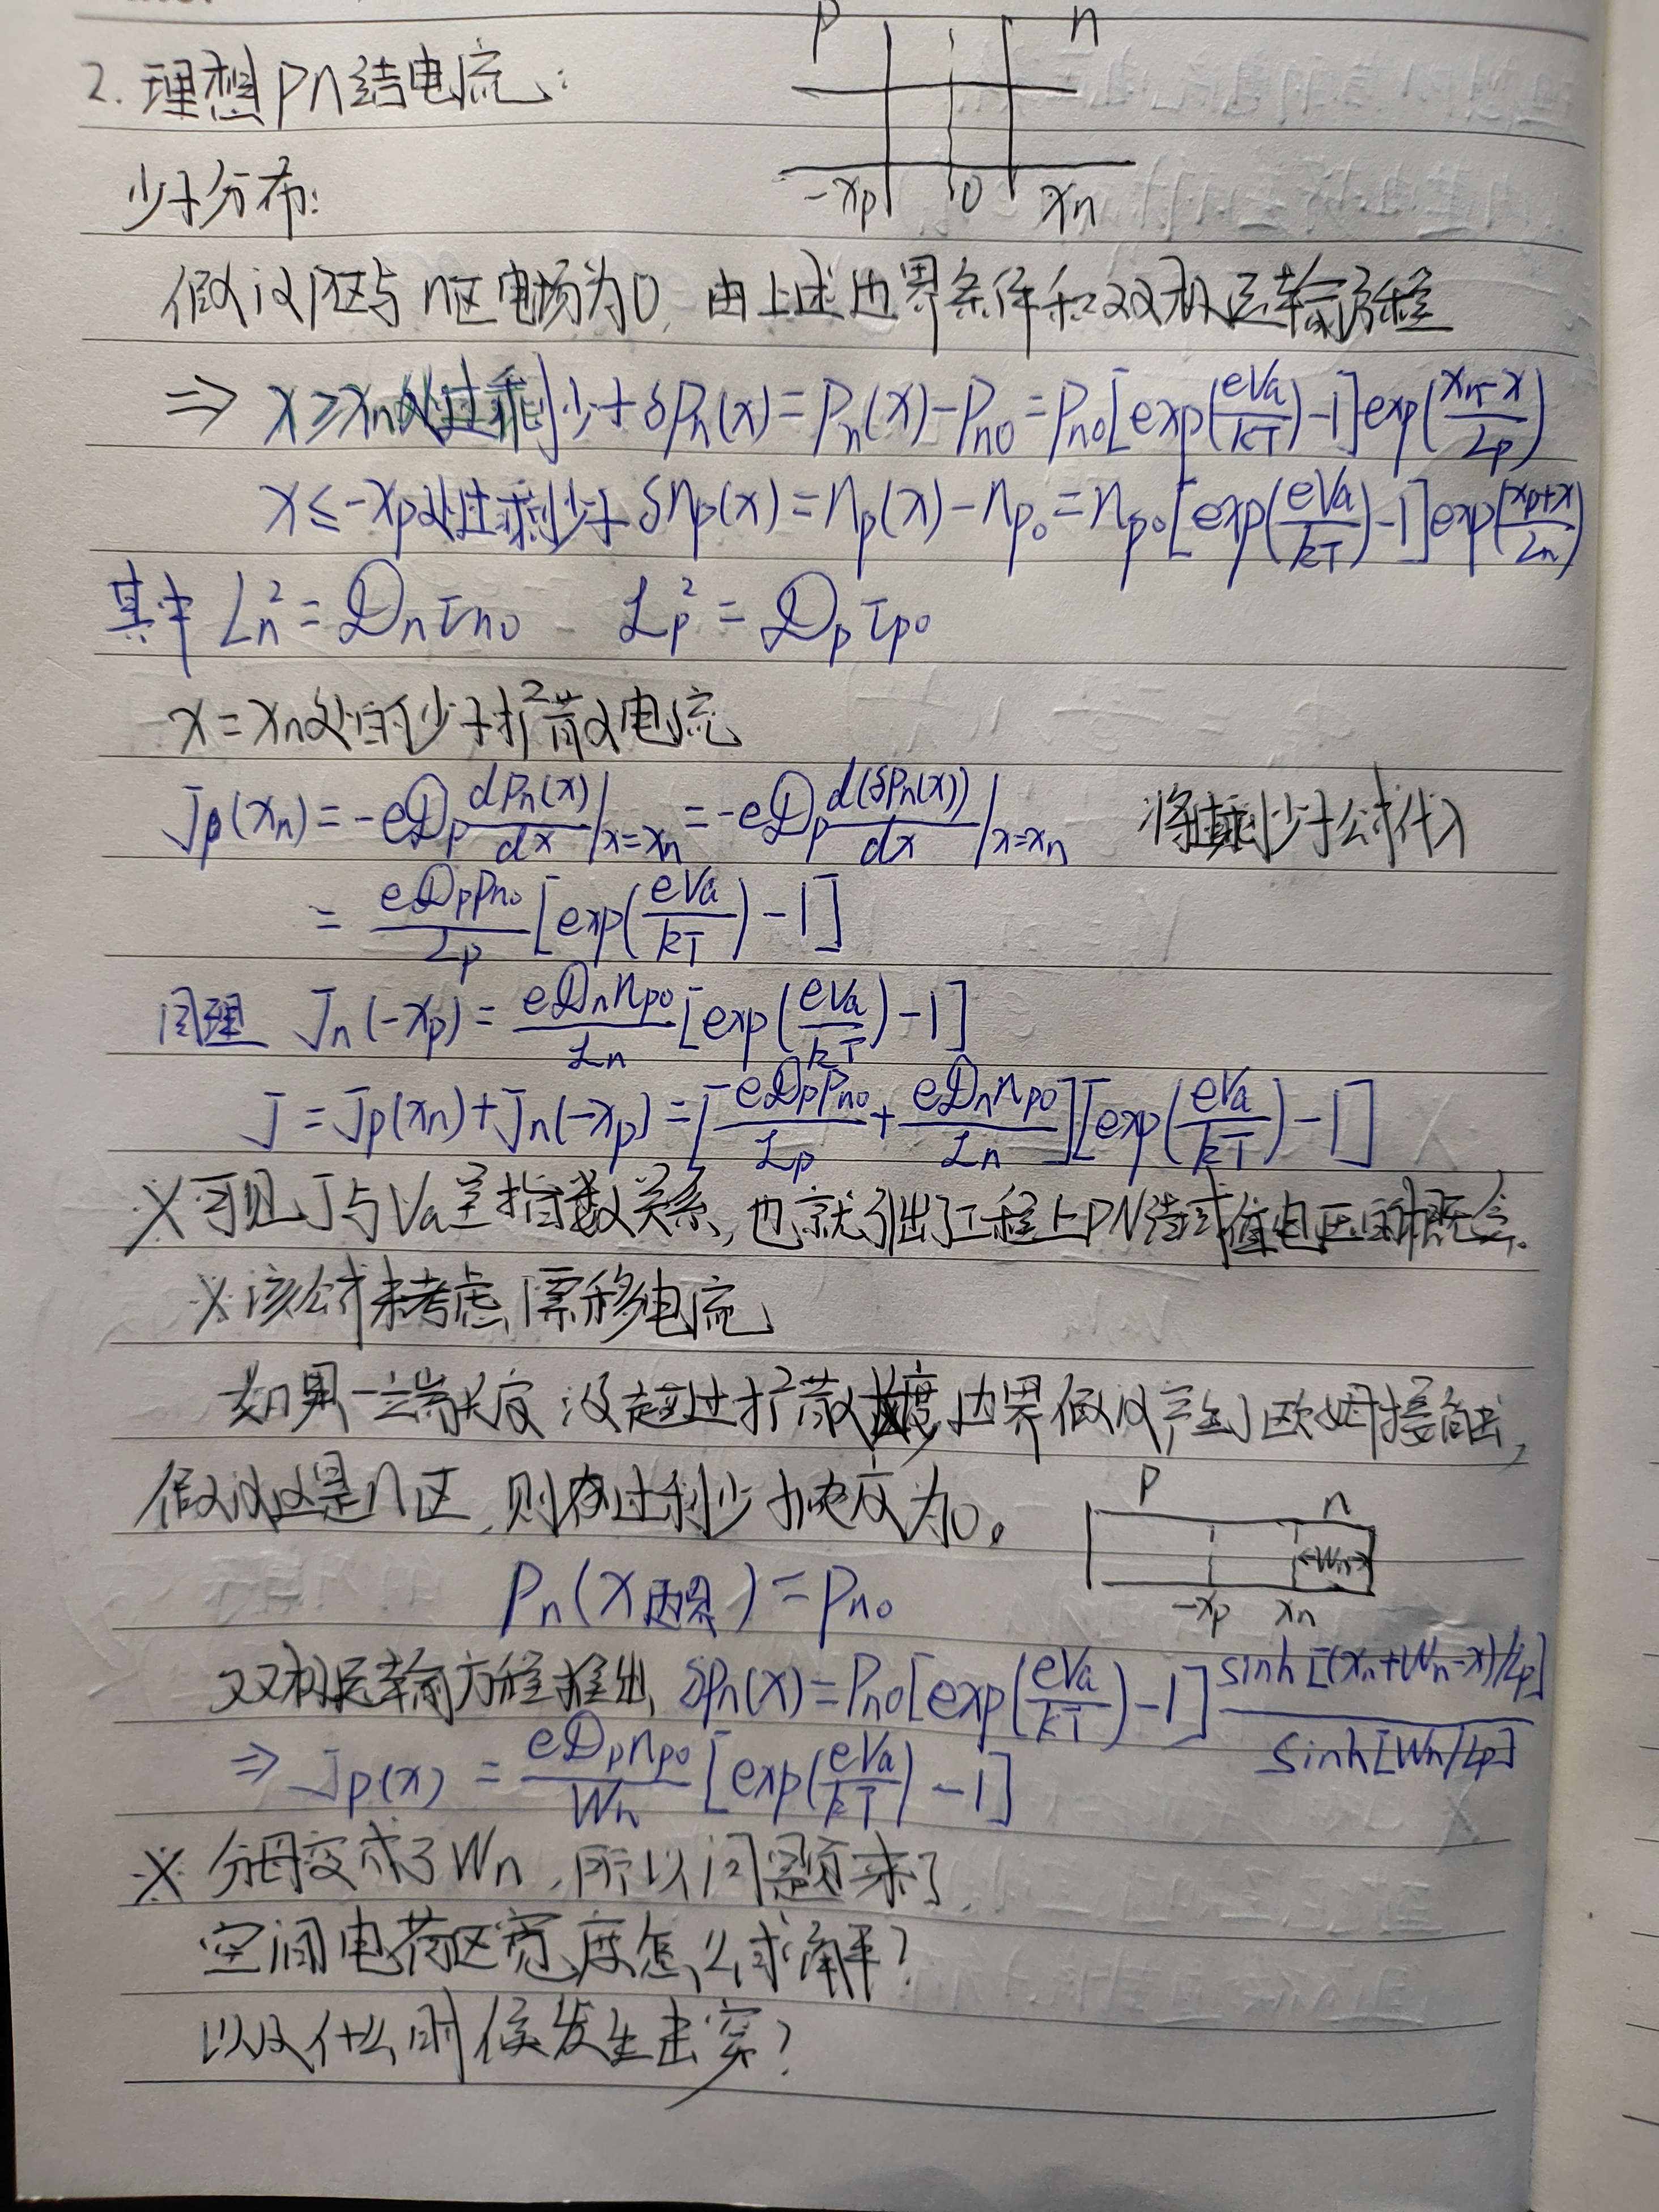 p n
2. 理想pn结电流:
-xp 0 xn
少子分布:
假设p区与n区电场为0, 由上述边界条件和双极运输方程
⇒ x≥xn处过剩少子 δPn(x)=Pn(x)-Pn0=Pn0[exp(eVa/kT)-1]exp((xn-x)/Lp)
x≤-xp处过剩少子 δnp(x)=np(x)-np0=np0[exp(eVa/kT)-1]exp((xp+x)/Ln)
其中 Ln²=Dnτn0 Lp²=Dpτp0
x=xn处的少子扩散电流
Jp(xn)=-eDp dPn(x)/dx|x=xn=-eDp d(δPn(x))/dx|x=xn 将过剩少子公式代入
= eDpPn0/Lp [exp(eVa/kT)-1]
同理 Jn(-xp)= eDnnp0/Ln [exp(eVa/kT)-1]
J=Jp(xn)+Jn(-xp)=[eDpPn0/Lp + eDnnp0/Ln][exp(eVa/kT)-1]
※可见J与Va呈指数关系,也就引出了工程上PN结阈值电压的概念。
※该公式未考虑漂移电流
如果一端长度没超过扩散长度,边界假设产生了欧姆接触,
假设这是n区,则有过剩少子浓度为0。
p n
Wn
-xp xn
Pn(x边界)=Pn0
双极运输方程推出 δPn(x)=Pn0[exp(eVa/kT)-1] sinh[(xn+Wn-x)/Lp]/sinh[Wn/Lp]
⇒ Jp(x) = eDpnp0/Wn [exp(eVa/kT)-1]
※ 分母变成了Wn,所以问题来了
空间电荷区宽度怎么求解?
以及什么时候发生击穿?